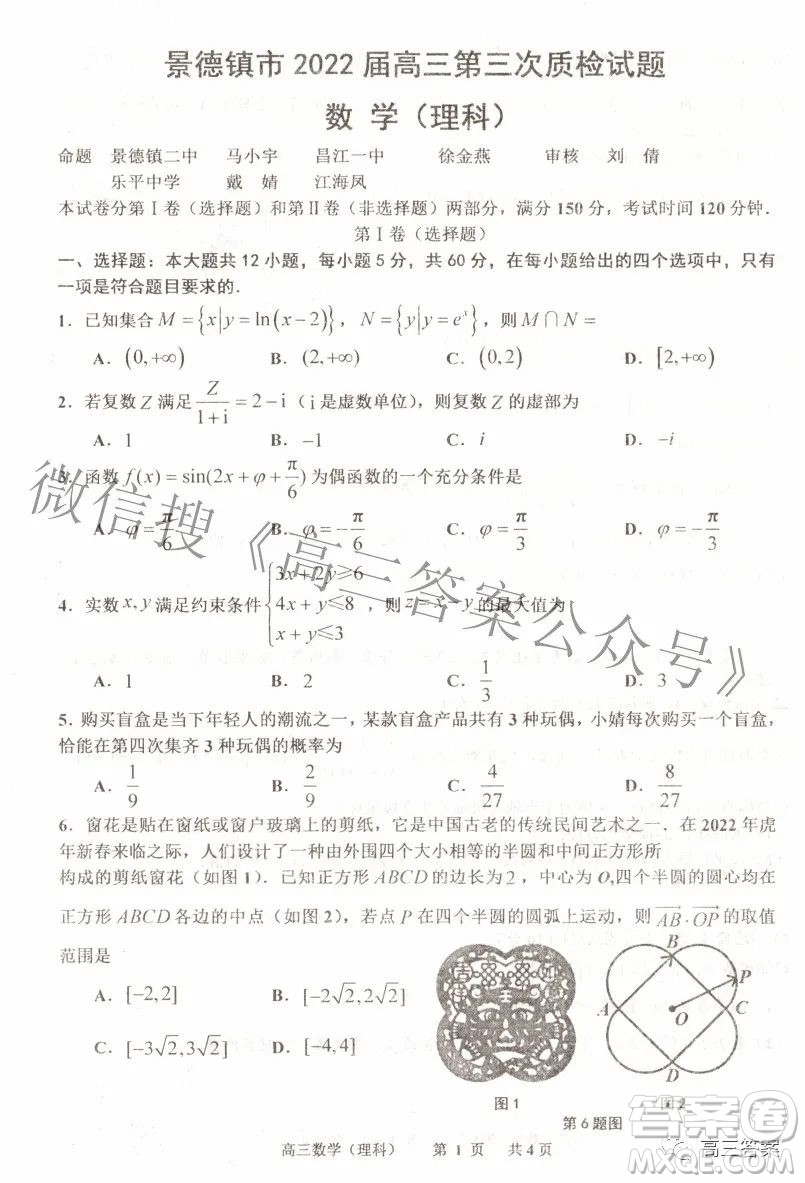 景德镇市 2022 届高三第三次质检试题
数 学（理科）
命题 景德镇二中 马小宇 昌江一中 徐金燕 审核 刘 倩
乐平中学 戴 婧 江海凤
本试卷分第Ⅰ卷（选择题）和第Ⅱ卷（非选择题）两部分，满分 150 分，考试时间 120 分钟．
第Ⅰ卷（选择题）
一、选择题：本大题共 12 小题，每小题 5 分，共 60 分，在每小题给出的四个选项中，只有
一项是符合题目要求的．
1．已知集合 M={x|y=ln(x−2)}，N={y|y=e^x}，则 M∩N=
A．(0,+∞) B．(2,+∞) C．(0,2) D．[2,+∞)
2．若复数 Z 满足 Z/(1+i)=2−i（i 是虚数单位），则复数 Z 的虚部为
A．1 B．−1 C．i D．−i
3．函数 f(x)=sin(2x+φ+π/6) 为偶函数的一个充分条件是
A．φ=π/6 B．φ=−π/6 C．φ=π/3 D．φ=−π/3
4．实数 x,y 满足约束条件 {3x+2y≥6 4x+y≤8 x+y≤3，则 z=x−y 的最大值为
A．1 B．2 C．1/3 D．3
5．购买盲盒是当下年轻人的潮流之一，某款盲盒产品共有 3 种玩偶，小婧每次购买一个盲盒，
恰能在第四次集齐 3 种玩偶的概率为
A．1/9 B．2/9 C．4/27 D．8/27
6．窗花是贴在窗纸或窗户玻璃上的剪纸，它是中国古老的传统民间艺术之一．在 2022 年虎
年新春来临之际，人们设计了一种由外围四个大小相等的半圆和中间正方形所
构成的剪纸窗花（如图 1）．已知正方形 ABCD 的边长为 2，中心为 O,四个半圆的圆心均在
正方形 ABCD 各边的中点（如图 2），若点 P 在四个半圆的圆弧上运动，则 AB·OP 的取值
范围是
A．[−2,2] B．[−2√2,2√2]
C．[−3√2,3√2] D．[−4,4]
B
P
A
O
C
D
图 1
图 2
第 6 题图
高三数学（理科） 第 1 页 共 4 页
微信搜《高三答案公众号》
答案圈
MXQE.COM
高三答案